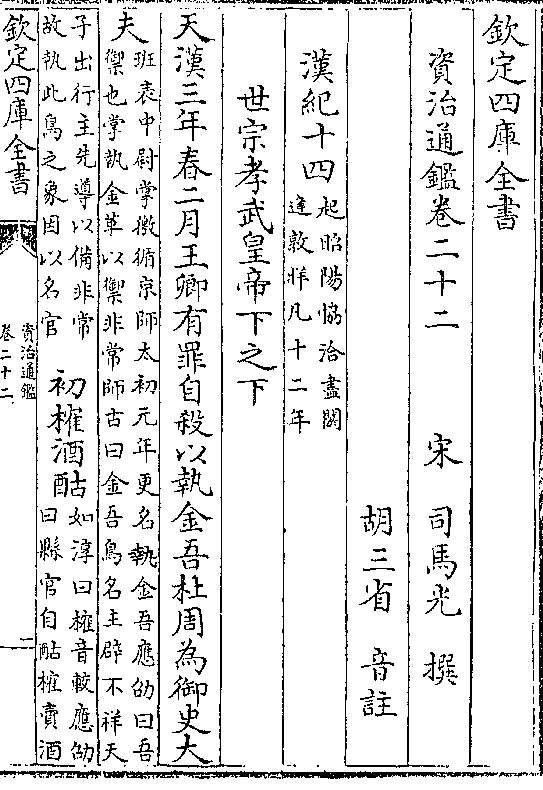 欽定四庫全書
資治通鑑卷二十二
宋 司馬光 撰
胡三省 音註
漢紀十四起昭陽協洽盡閼
逢敦牂凡十二年
世宗孝武皇帝下之下
天漢三年春二月王卿有罪自殺以執金吾杜周為御史大
夫班表中尉掌徼循京師太初元年更名執金吾應劭曰吾
禦也掌執金革以禦非常師古曰金吾鳥名主辟不祥天
子出行主先導以備非常
故執此鳥之象因以名官
初榷酒酤如淳曰榷音較應劭
曰縣官自酤榷賣酒
欽定四庫全書
資治通鑑
卷二十二
二